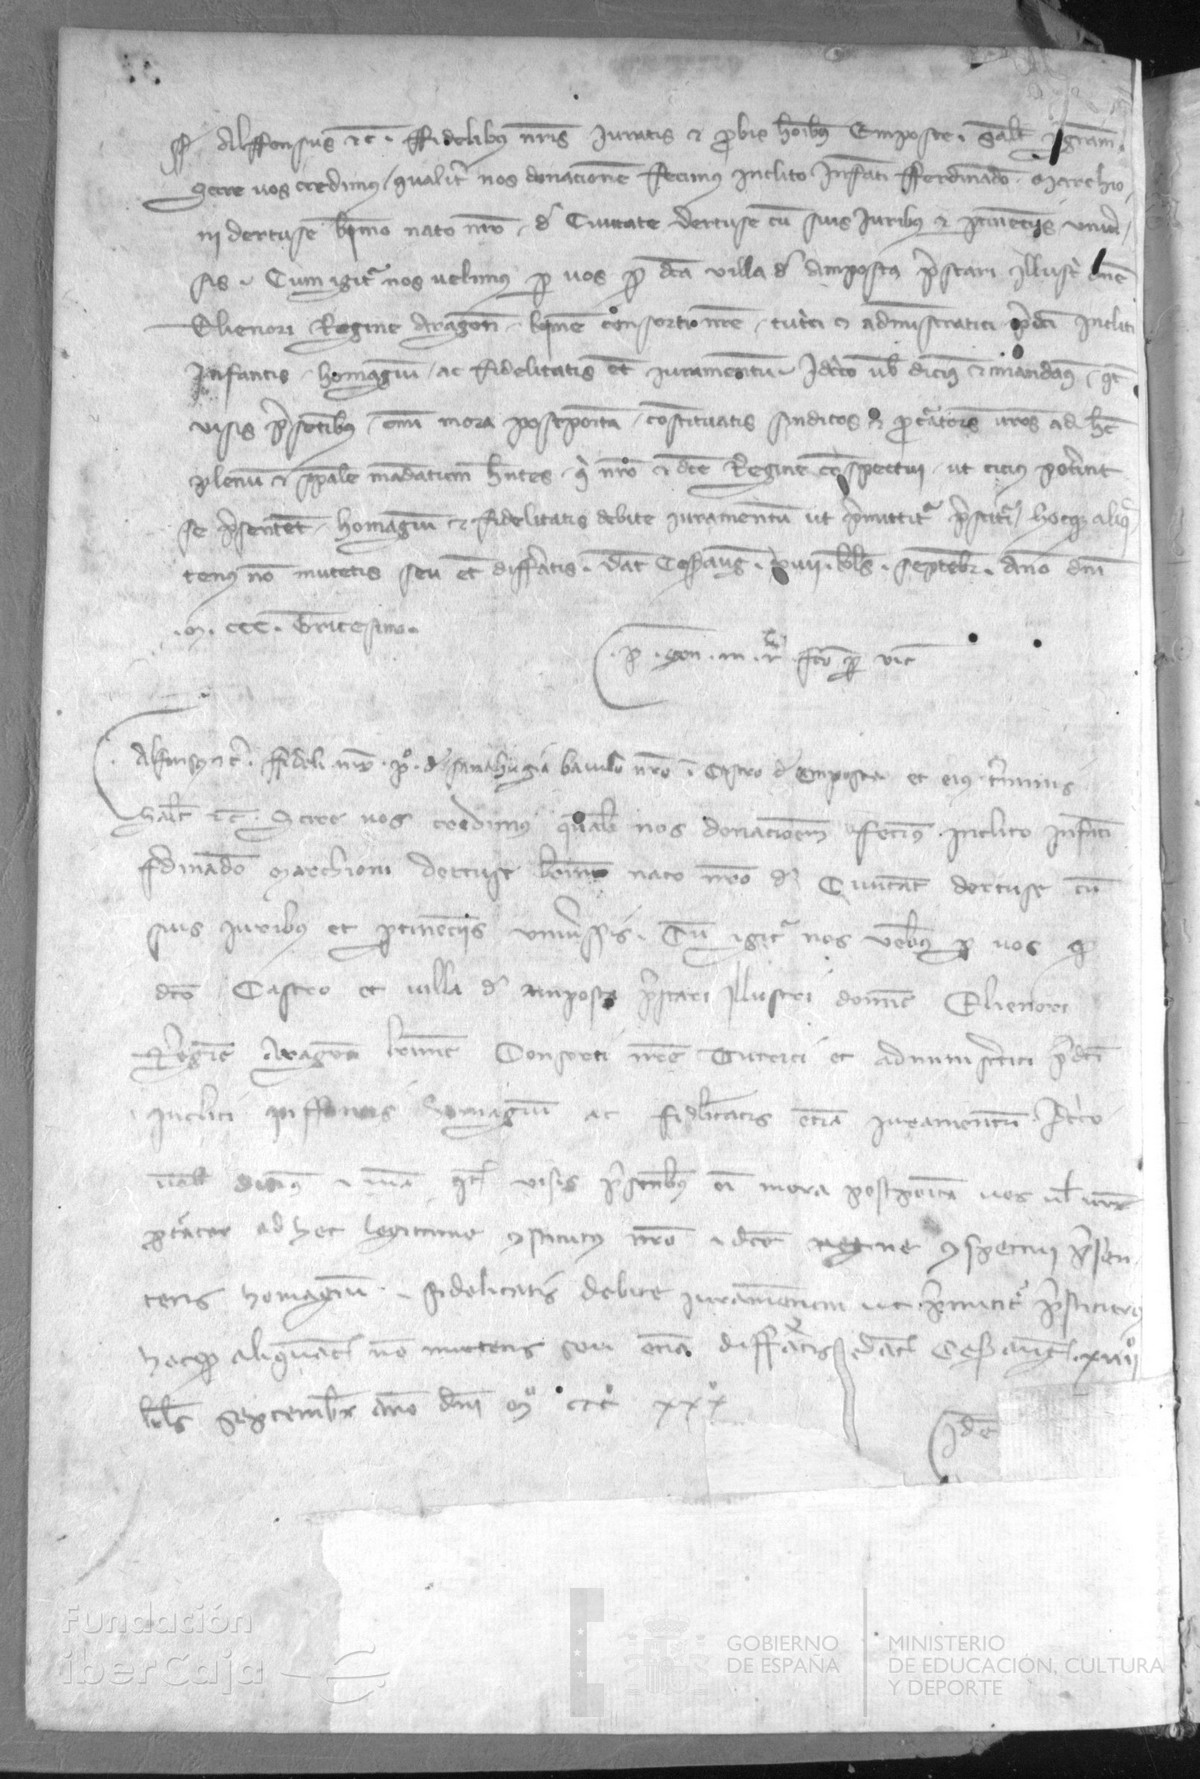 Alffonsus etc. ffidelibus nris Juratis et probis hoibus Emposte. Salt et gram.
Scire vos credimus / qualitr nos donacionem fecimus Inclito Infanti fferdinando. Marchio
ni dertuse krmo nato nro / de Civitate dertuse cu suis Juribus et ptinenciis univer
sis. Cum igitr nos velimus p vos p dca villa d Amposta prstari Illustri dne
Elienori Regine Aragon. krme consorti nre. tutrici et administratici prdci Incliti
Infantis. homagiu / ac fidelitatis et iuramentu. Idcirco vob dicim et mandam / qt
visis prsentibus / omi mora postpoita / constituatis sindicos et prcatores vros ad hc
plenu et spale mandatum hntes. qi nro et dce Regine conspectui. ut cicius poterint
se prsentent. homagiu et fidelitatis debite iuramentu ut prmittitr prstituri / hocqz aliqua
tenus no mutetis seu et differatis. dat Cesaraug. xvii. kls. septembr. Ano dni
. M. CCC. Tricesimo.
p. Gon. m. r. fco p vic
Alfonsus etc. ffideli nro. P. d Sanahugia baiulo nro i Castro d Emposta et eius terminis
Salt etc. Scire vos credimus qualr nos donacioem fecim. inclito infanti
ferdinando Marchioni dertuse krmo nato nro d Civitate dertuse cu
suis Juribus et ptinenciis universsis. Cu igitr nos velimus p vos p
dco Castro et villa d Amposta prstari Illustri domne Elienori
Regine Aragon krme Consorti nre Tutrici et administratici prdci
Incliti inffantis homagiu ac fidelitatis etia iuramentu. Idcirco
vob dicim et man qt visis prsentibus oi mora postpoita vos vl vr
prcator ad hec legittime constitutus nro et dce regine conspectui prsen
tetis homagiu et fidelitatis debite iuramentum ut prmittitr prstituri
hocqz aliquat no mutetis seu etia differatis dat Cesaraugt. xvii
kls septembr Ano dni M CCC xxx
Idem
Fundación
iberCaja
GOBIERNO
DE ESPAÑA
MINISTERIO
DE EDUCACIÓN, CULTURA
Y DEPORTE